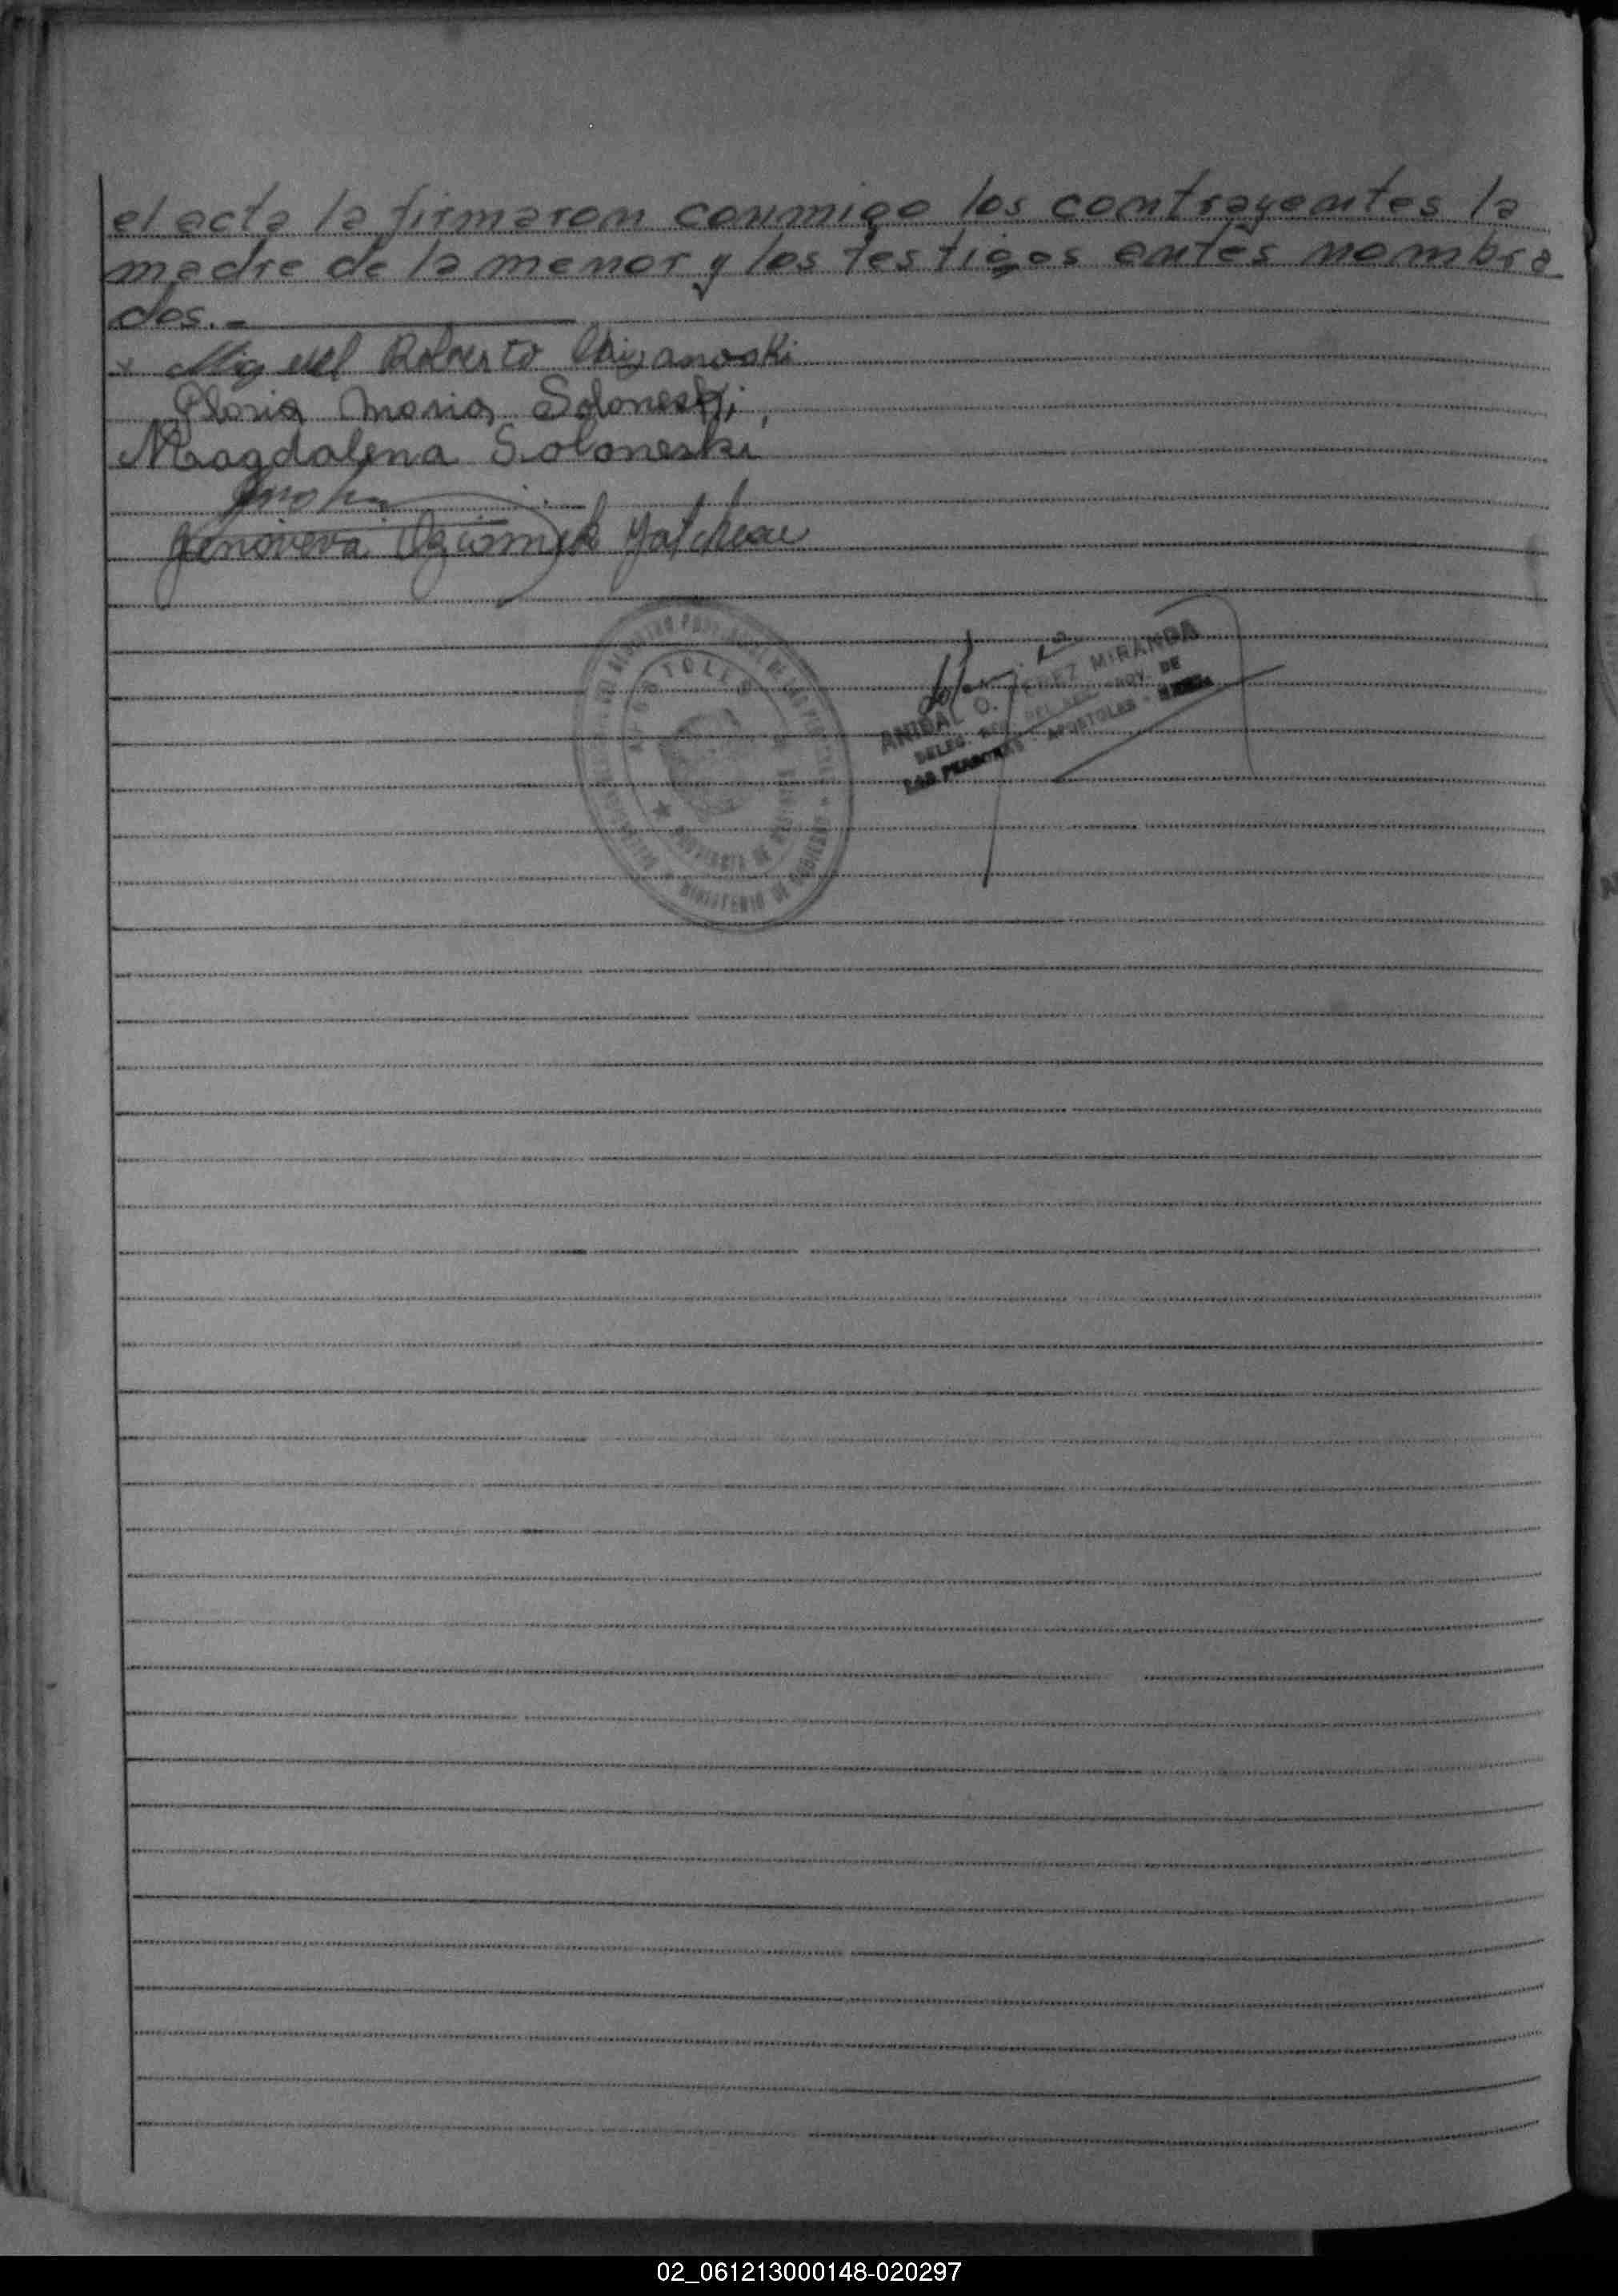 el acta la firmaron conmigo los contrayentes la
madre de la menor y los testigos antes nombra
dos.-
Miguel Roberto
Gloria Maria Soloneski
Magdalena Soloneski
Genoveva
APOSTOLES
PROVINCIA DE MISIONES
MINISTERIO DE GOBIERNO
ANIBAL O. PEREZ MIRANDA
DELEG. REG. DEL PROV. DE
LAS PERSONAS - APOSTOLES - MNES.
02_061213000148-020297